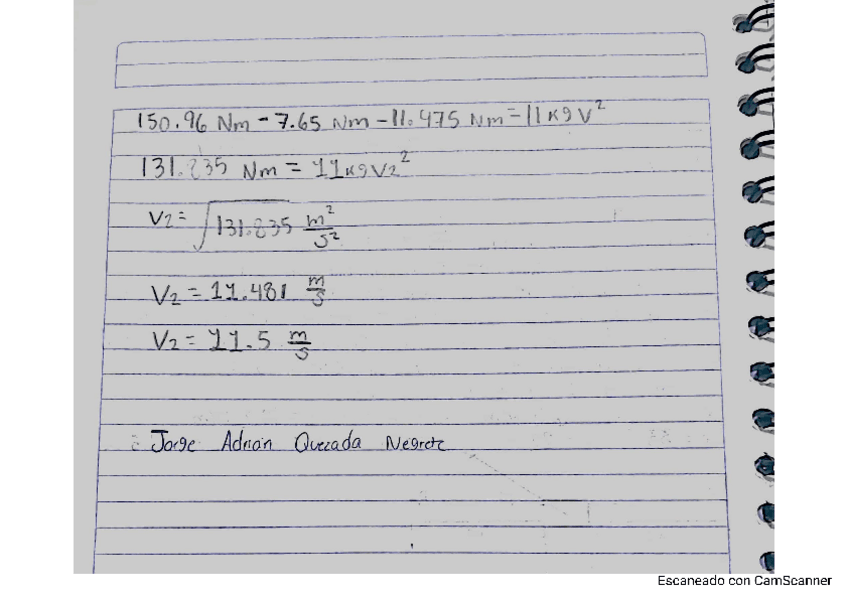 150.96 Nm - 7.65 Nm - 11.475 Nm = 11 kg v²
131.835 Nm = 11 kg v₂²
v₂ = √131.835 m²/s²
v₂ = 11.481 m/s
v₂ = 11.5 m/s
Jorge Adrian Quezada Negrete
Escaneado con CamScanner